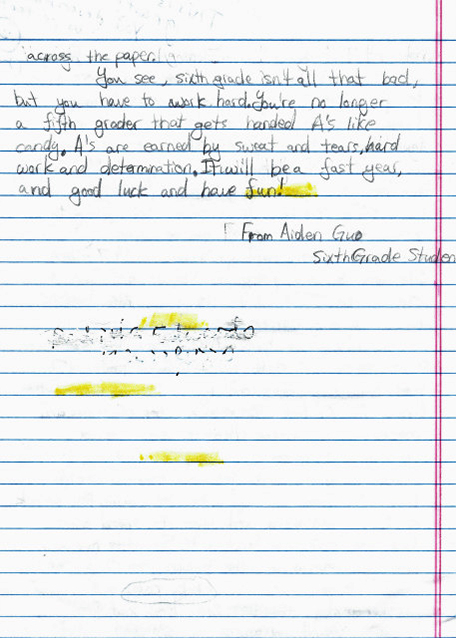 across the paper.
You see, sixth grade isn't all that bad,
but you have to work hard. You're no longer
a fifth grader that gets handed A's like
candy. A's are earned by sweat and tears, hard
work and determination. It will be a fast year,
and good luck and have fun!
From Aiden Guo
Sixth Grade Studen